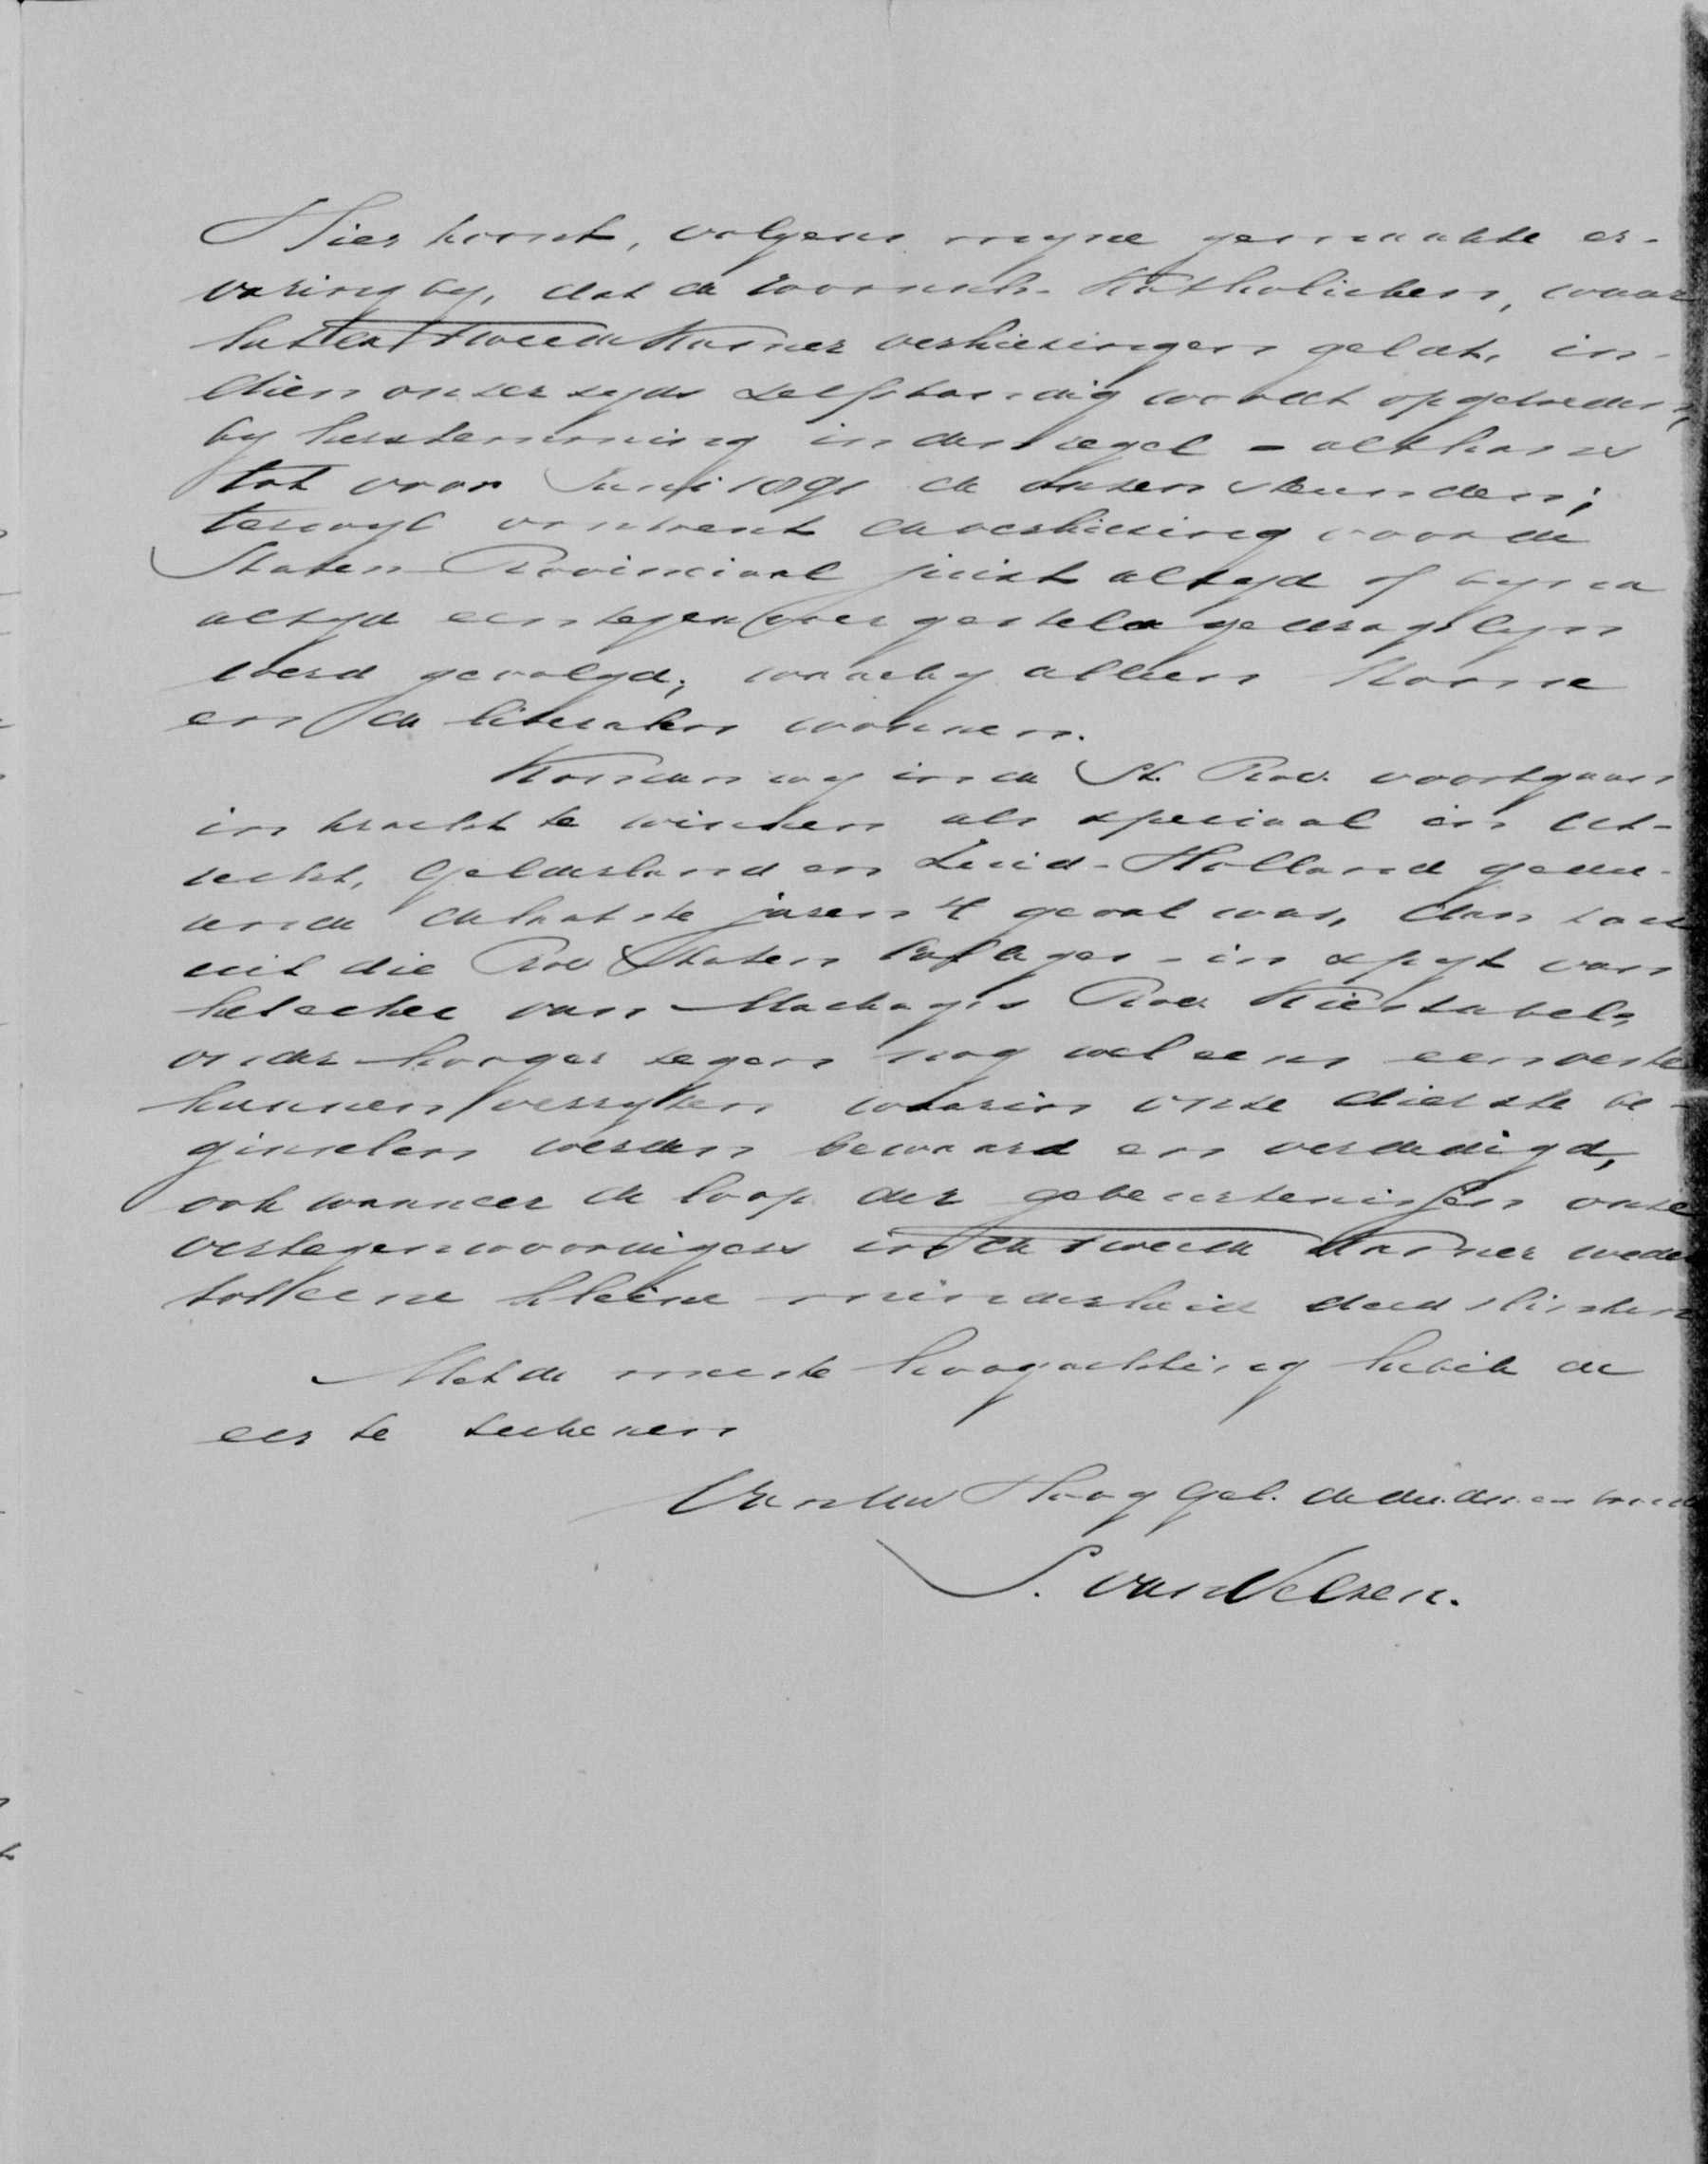 Hier komt, volgens myne gemaakte er-
varing by, dat de Roomsch-Katholieken, waar
het de Tweede Kamer verkiezingen geldt, in-
dien onzerzyds zelfstandig wordt opgetreden,
by herstemming in den regel - althans
tot voor Juni 1891 de onzen steunden;
terwyl omtrent de verkiezing voor de
Staten Provinciaal juist altyd of byna
altyd een tegenovergestelde gedragslyn
werd gevolgd; waarby alleen Rome
en de liberalen wonnen.
Konden wy in de St. Prov. voortgaan
in kracht te winnen als speciaal in Ut-
recht, Gelderland en Zuid-Holland gedu-
rende de laatste jaren 't geval was, dan zou
uit die Prov Staten - in spyt van
het echec van Mackay's Prov. Kiestabel,
onder hooger zegen nog wel eens een veste
kunnen verryzen waarin onze dierste be-
ginselen werden bewaard en verdedigd,
ook wanneer de loop der gebeurtenissen onze
vertegenwoordigers in de Tweede Kamer weder
tot eene kleine minderheid deed slinken
Met de meeste hoogachting heb ik de
eer te teekenen
Van Uw HoogGel. de dw. dr. en
S. van Velzen.